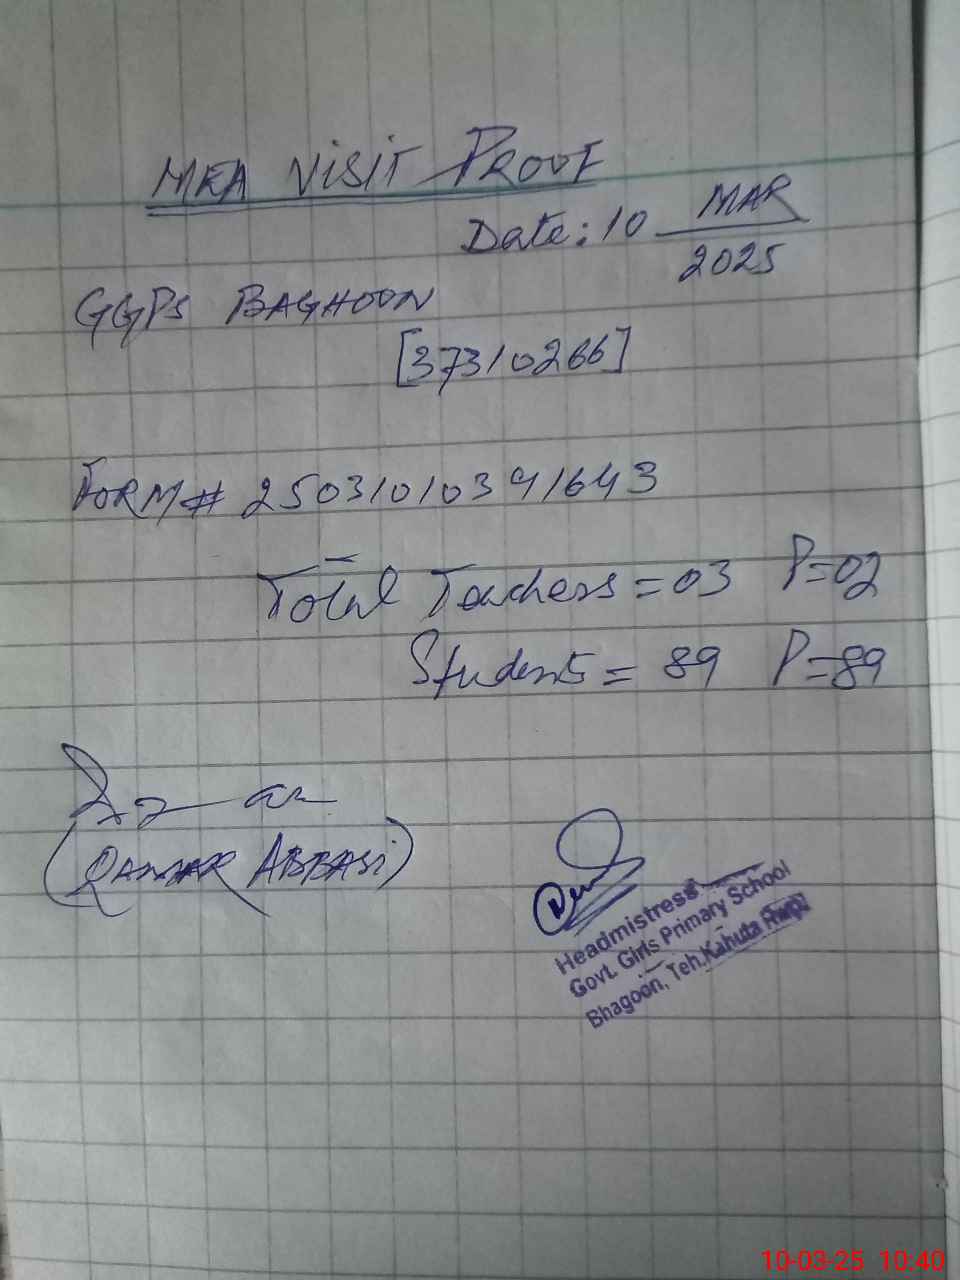 MEA VISIT PROOF
Date: 10 MAR
2025
GGPS BAGHOON
[37310266]
FORM# 25031010391643
Total Teachers = 03 P=02
Students = 89 P=89
(QAMAR ABBASI)
Headmistress
Govt. Girls Primary School
Bhagoon, Teh.Kahuta Rwp
10-03-25 10:40